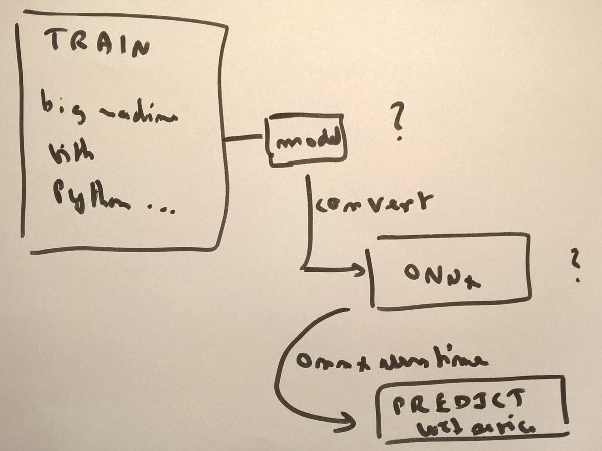 TRAIN
big machine
with
Python ...
model
?
convert
ONNX
?
onnx runtime
PREDICT
web service